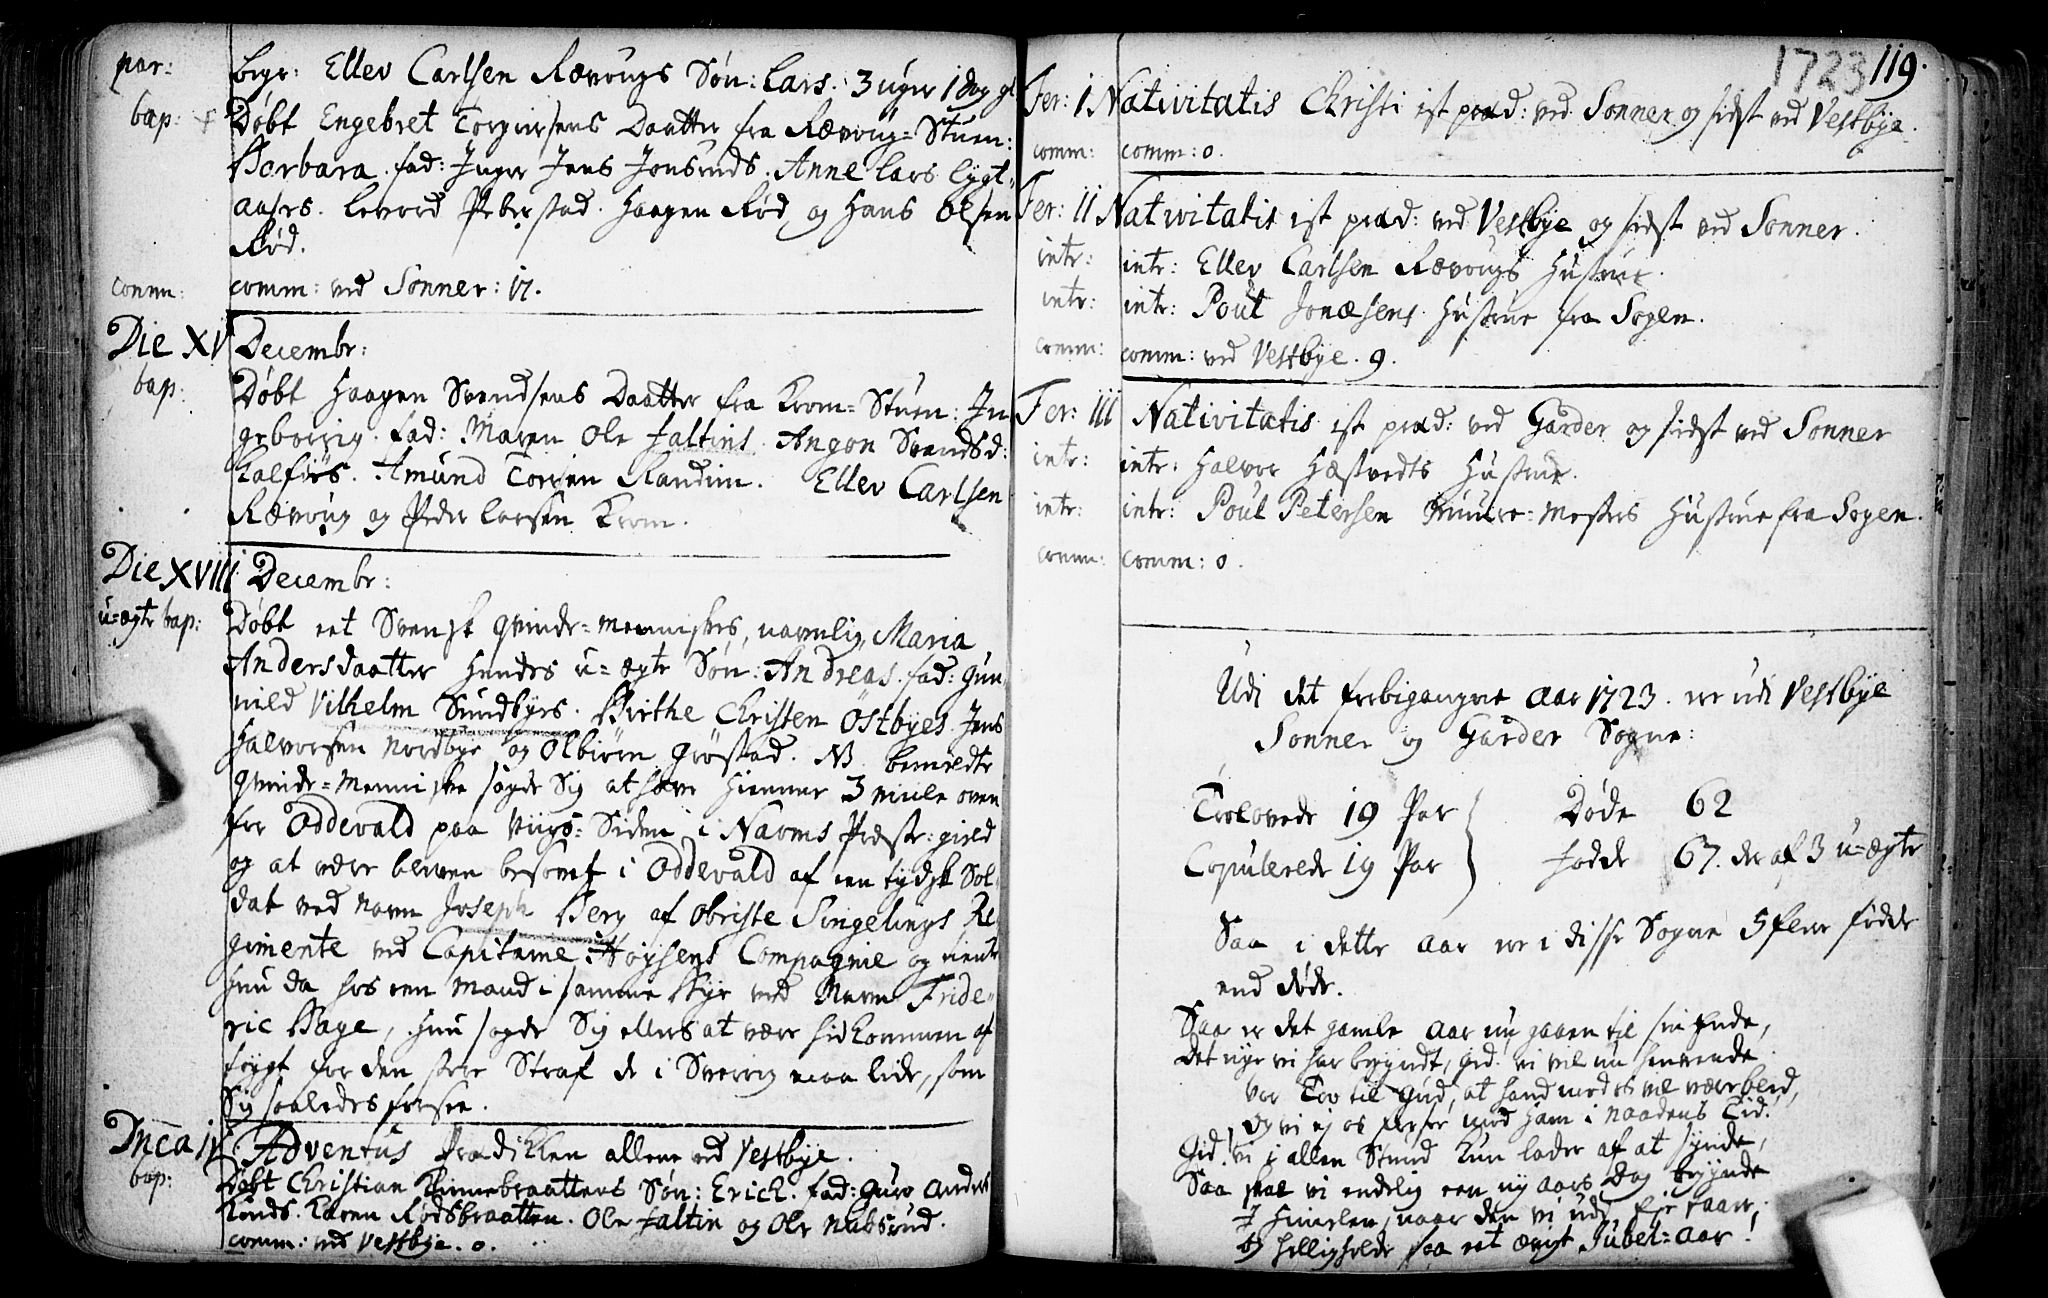 par: begr: Ellev Carlsen Rævougs Søn: Lars. 3 uger 1 dag gl
bap: Døbt Engebret Torgiersens Daatter fra Rævoug=Stuen:
Barbara. fad: Inger Jens Jonsruds. Anne Lars Lygt-
aases. Levord Peberstad. Haagen Rød og Hans Olsen
Rød.
comm: comm: ved Sonner: 17.
Die XV Decembr:
bap: Døbt Haagen Svendsens Daatter fra Krom=Stuen: In
geborrig. fad: Maren Ole Faltins. Angon Svendsd:
Kalføs. Amund Torsen Randim. Ellev Carlsen
Rævoug og Peder Larsen Krom.
Die XVIII Decembr:
u=ægte bap: Døbt eet Svensk Qvinde=menniskes, navnlig, Maria
Andersdaatter hendes u=ægte Søn: Andreas. fad: Gun
nild Vilhelm Sundbyes. Birthe Christen Østbyes. Jens
Halvorsen Nordbye og Olbiørn Grøstad. NB. bemeldte
Qvinde=Menniske sagde Sig at have hiemme 3 miile oven
for Oddevald paa Viigs=Siden i Navrns Præste:gield
og at være bleven besovet i Oddevald af een tydsk Sol-
dat ved navn Joseph Berg af Obriste Singelings Re
gimente ved Capitaine Høysens Compagnie og tiente
hun da hos een Mand i samme Bye ved Navn Fride-
ric Bage, hun sagde Sig ellers at være hidkommen af
frygt for den store Straf de i Sverrig maa lide, som
Sig saaledes forsee.
Dnica IV Adventus Prædikken allene ved Vestbye.
bap: Døbt Christian Kinnebraattens Søn: Erich. fad: Guro Anders
Kinds. Karen Rødsbraatten. Ole Faltin og Ole Nabsrud.
comm: ved Vestbye. 0.
1723 119.
Fer: I Nativitatis Christi ist præd: ved Sonner og sidst ved Vestbye.
comm: comm: 0.
Fer: II Nativitatis ist præd: ved Vestbye og sidst ved Sonner.
intr: intr: Ellev Carlsen Rævougs Hustrue.
intr: intr: Poul Jonæsens Hustrue fra Sogen.
comm: comm: ved Vestbye. 9.
Fer: III Nativitatis ist præd: ved Garder og sidst ved Sonner
intr: intr: Halvor Hæstvedts Hustrue.
intr: intr: Poul Petersen Muure=Mesters Hustrue fra Sogen.
comm: comm: 0.
Udi det forbigangne Aar 1723. ere udi Vestbye
Sonner og Garder Sogne:
Trolovede 19 Par Døde 62
Copulerede 19 Par Fødde 67. der af 3 u=ægte
Saa i dette Aar ere i disse Sogne 5 flere fødde
end døde.
Saa er det gamle Aar nu gaaen til sin Ende,
Det nye vi har begyndt, Gid vi vil nu henvende
vor Tro til Gud, at hand med os vil være blid,
Og vi ej os forsee mod Ham i Naadens Tid.
Gid vi i allen Stund kun lader af at synde,
Saa skal vi endelig een ny Aars Dag begynde
I Himlen, naar den vi udi
Og helligholde saa eet ævigt Jubel=Aar!